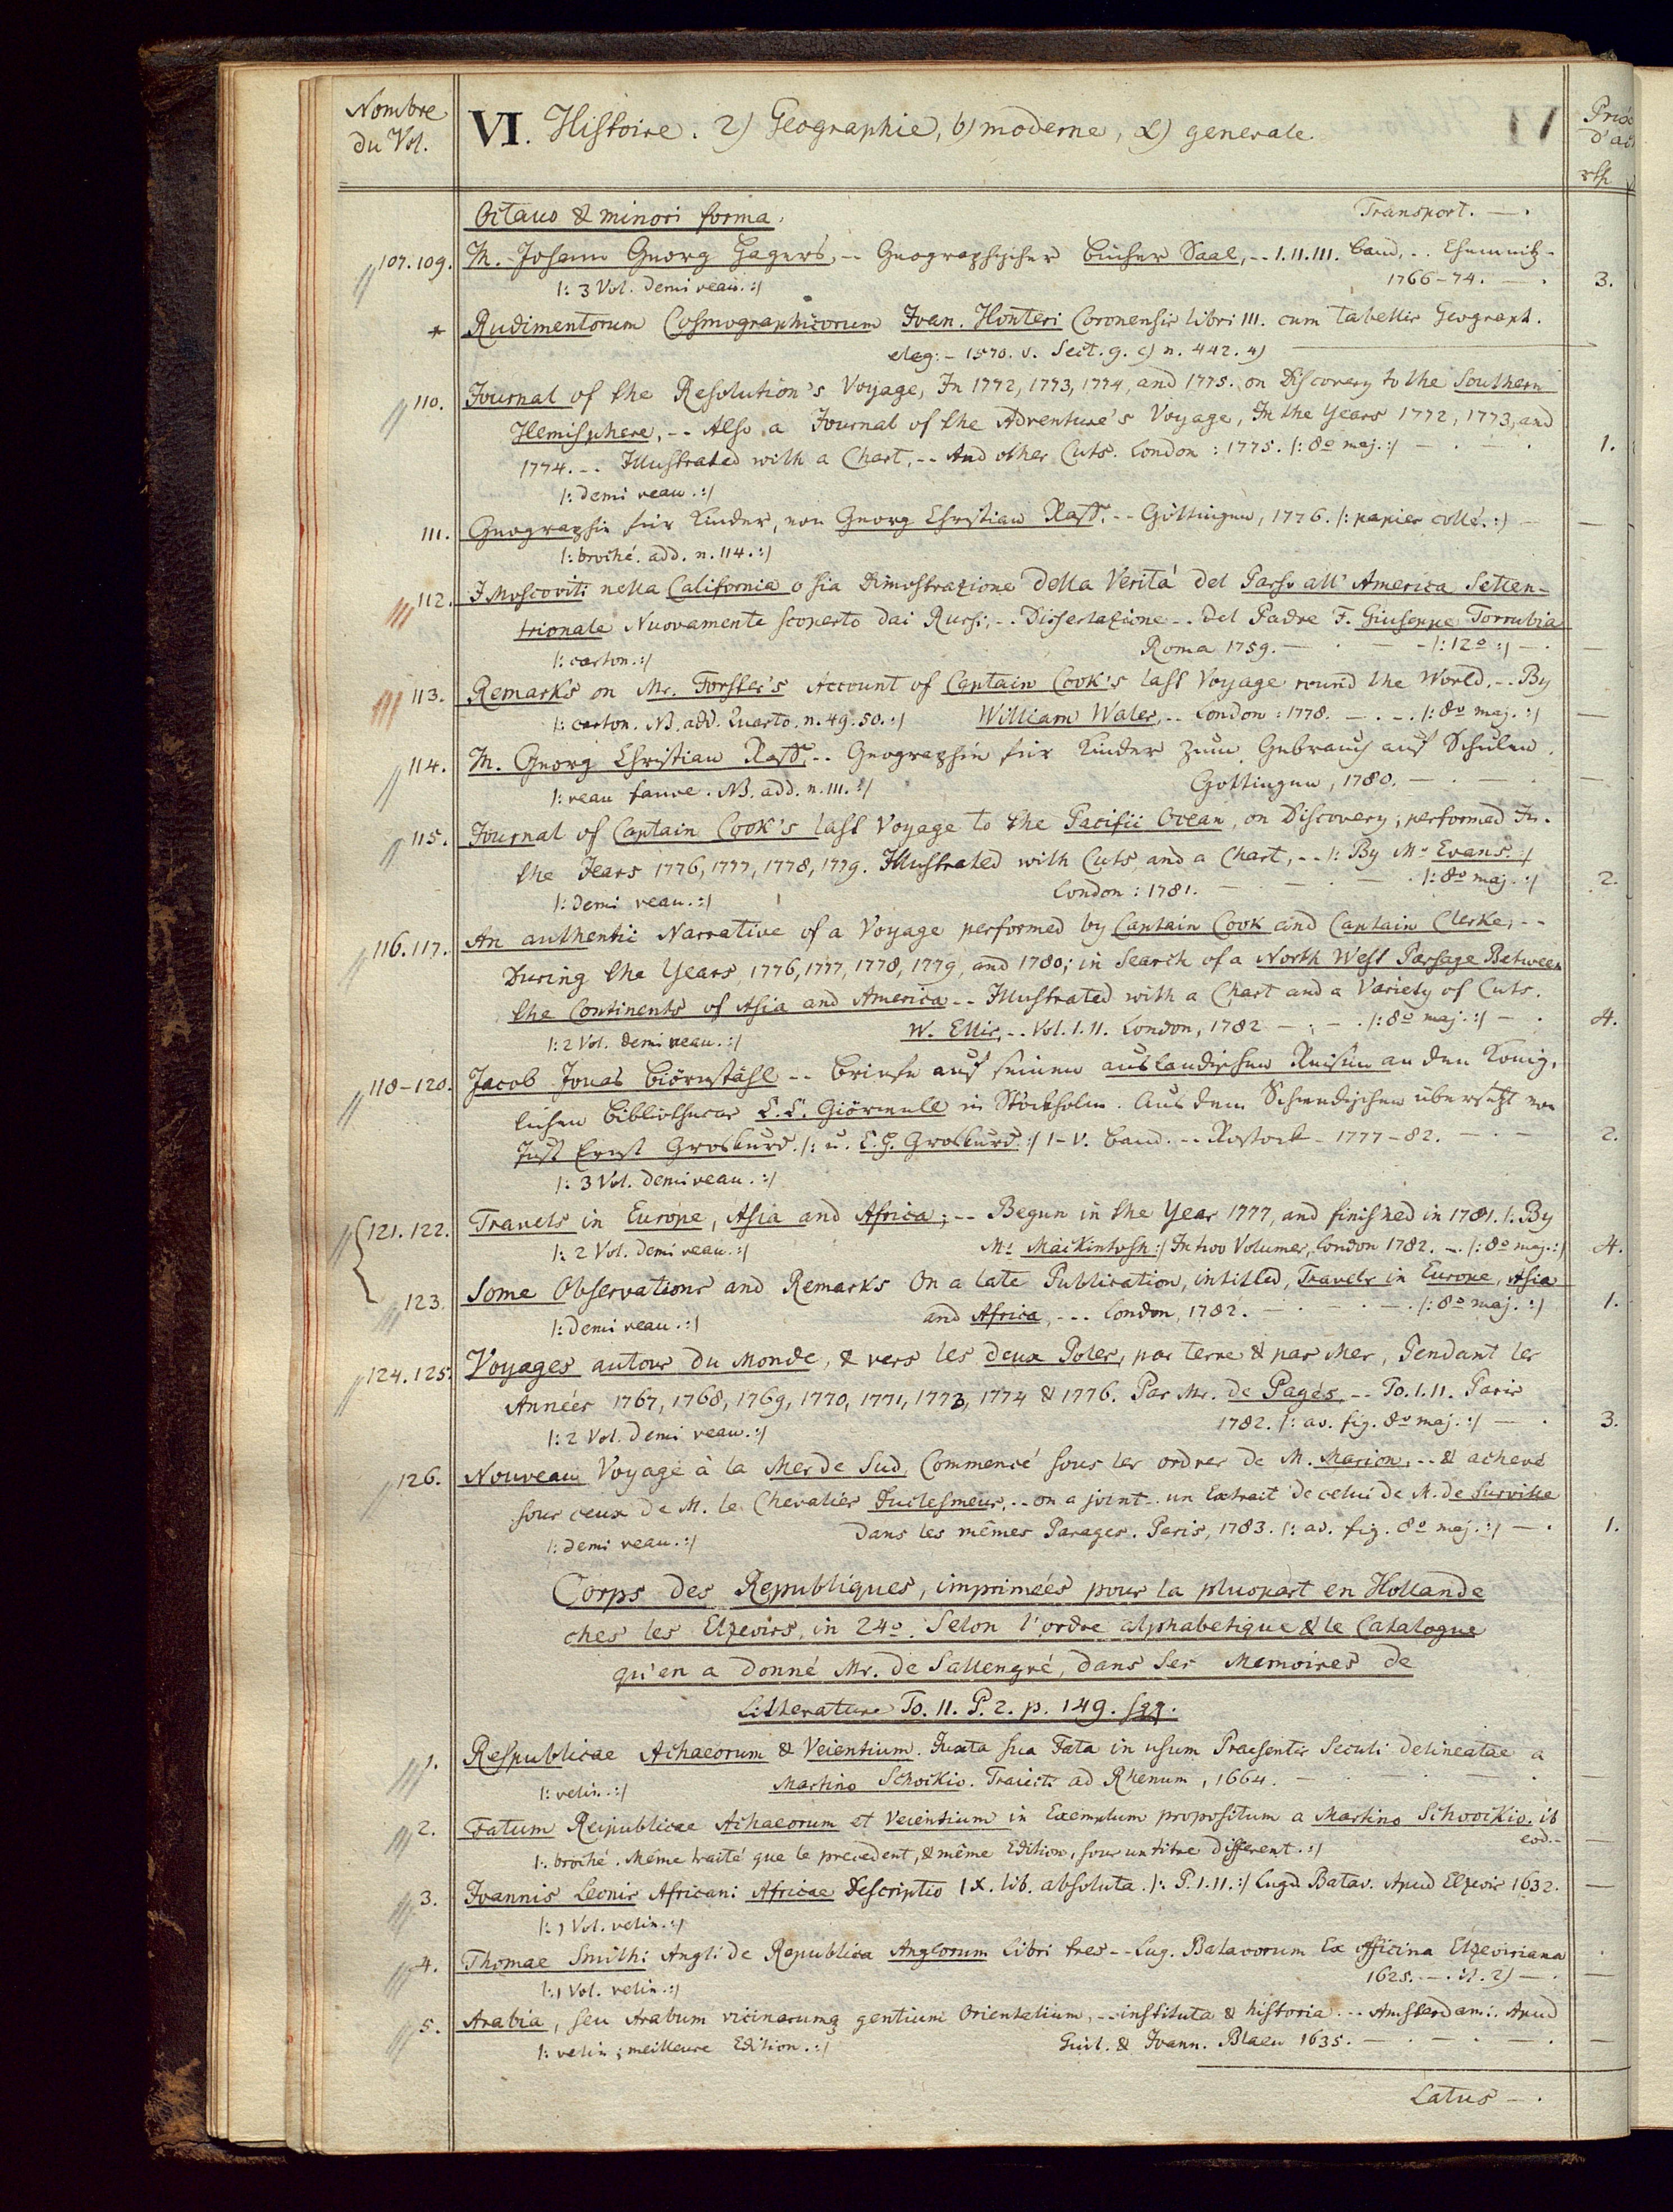 Nombre
du Vol.
VI. Histoire. 2) Geographie, b) moderne, α) generale.
Prix
d'ac
rth
Octavo & minori forma.
Transport. — .
107. 109. M. Johann Georg Hagers, -- Geographischer Bücher Saal, -- I. II. III. Band, .. Chemnitz -
|: 3 Vol. demi veau. :| 1766-74. — . 3.
* Rudimentorum Cosmographicorum Ioan. Honteri Coronensis libri III. cum tabellis Geograph.
eleg: - 1570. v. Sect. g. c) n. 442. 4)
110. Journal of the Resolution's Voyage, In 1772, 1773, 1774, and 1775. on Discovery to the Southern
Hemisphere, -- Also a Journal of the Adventure's Voyage, In the Years 1772, 1773, and
1774. -- Illustrated with a Chart, -- And other Cuts. London: 1775. |: 8º maj. :| — . — . 1.
|: demi veau. :|
111. Geographie für Kinder, von Georg Christian Raff. -- Göttingen, 1776. |: papier collé. :| — —
|: broché. add. n. 114. :|
112. I Moscoviti nella California o sia Dimostrazione della Verità del Passo all' America Setten-
trionale Nuovamente scoperto dai Russi, -. Dissertazione -. del Padre F. Giuseppe Torrubia
|: carton. :| Roma 1759. — . — - |: 12º :| — . —
113. Remarks on Mr. Forster's Account of Captain Cook's last Voyage round the World. -. By
|: carton. NB. add. Quarto. n. 49. 50. :| William Wales, .. London: 1778. — . — . |: 8º maj. :| —
114. M. Georg Christian Raff, -. Geographie für Kinder zum Gebrauch auf Schulen.
|: veau fauve. NB. add. n. 111. :| Göttingen, 1780. — . — . —
115. Journal of Captain Cook's last Voyage to the Pacific Ocean, on Discovery; performed In.
the Years 1776, 1777, 1778, 1779. Illustrated with Cuts, and a Chart, -. |: By Mr Evans. :|
|: demi veau. :| London: 1781. — . — . — . |: 8º maj. :| 2.
116. 117. An authentic Narrative of a Voyage performed by Captain Cook and Captain Clerke, --
During the Years, 1776, 1777, 1778, 1779, and 1780; in Search of a North West Passage Between
the Continents of Asia and America -. Illustrated with a Chart and a Variety of Cuts.
|: 2 Vol. demi veau. :| W. Ellis, -. Vol. I. II. London, 1782 — . — . |: 8º maj. :| — . 4.
118-120. Jacob Jonas Biörnståhl -- Briefe auf seinen ausländischen Reisen an den König.
lichen Bibliothecar C. C. Giörwell in Stockholm. Aus dem Schwedischen übersetzt von
Just Ernst Groskurd. |: u. C. H. Groskurd. :| I-V. Band. -. Rostock - 1777-82. — . — 2.
|: 3 Vol. demi veau. :|
121. 122. Travels in Europe, Asia and Africa; -- Begun in the Year 1777, and finished in 1781. |: By
|: 2 Vol. demi veau. :| Mr Mackintosh :| In two Volumes, London 1782. -. |: 8º maj. :| 4.
123. Some Observations and Remarks On a late Publication, intitled, Travels in Europe, Asia
|: demi veau. :| and Africa, --- London, 1782. — . — . — . |: 8º maj. :| 1.
124. 125. Voyages autour du Monde, & vers les deux Poles, par terre & par Mer, Pendant les
Années 1767, 1768, 1769, 1770, 1771, 1773, 1774 & 1776. Par Mr. de Pagés, -- To. I. II. Paris
|: 2 Vol. demi veau. :| 1782. |: av. fig. 8º maj. :| — . 3.
126. Nouveau Voyage à la Mer de Sud, Commencé sous les ordres de M. Marion, -- & achevé
sous ceux de M. le Chevalier Duclesmeur, -. on a joint -. un Extrait de celui de M. de Surville
|: demi veau. :| dans les mêmes Parages. Paris, 1783. |: av. fig. 8º maj. :| — . 1.
Corps des Republiques, imprimées pour la pluspart en Hollande
ches les Elzevirs, in 24º. Selon l'ordre alphabetique & le Catalogue
qu'en a donné Mr. de Sallengré, dans ses Memoires de
Litterature To. II. P. 2. p. 149. sqq.
1. Respublicae Achaeorum & Veientium. Iuxta sua Fata in usum Praesentis Seculi delineatae a
|: velin. :| Martino Schookio. Traiecti ad Rhenum, 1664. — . — . — . —
2. Fatum Reipublicae Achaeorum et Veientium in Exemplum propositum a Martino Schoockio. ib
eod. - —
|: broché. Même traité que le precedent, & même Edition, sous un titre different. :|
3. Ioannis Leonis Africani Africae Descriptio IX. lib. absoluta. |: P. I. II. :| Lugd. Batav. Apud Elzevir 1632. —
|: 1 Vol. velin. :|
4. Thomae Smithi Angli de Republica Anglorum libri tres -- Lug. Batavorum Ex officina Elzeviriana
|: 1 Vol. velin. :| 1625. — . it. 2) — . —
5. Arabia, seu Arabum vicinarumq gentium Orientalium, -. instituta & historia -. Amsterdami. Apud
|: velin; meilleure Edition. :| Guil. & Ioann. Blaeu 1635. — . — . — . —
Latus — .